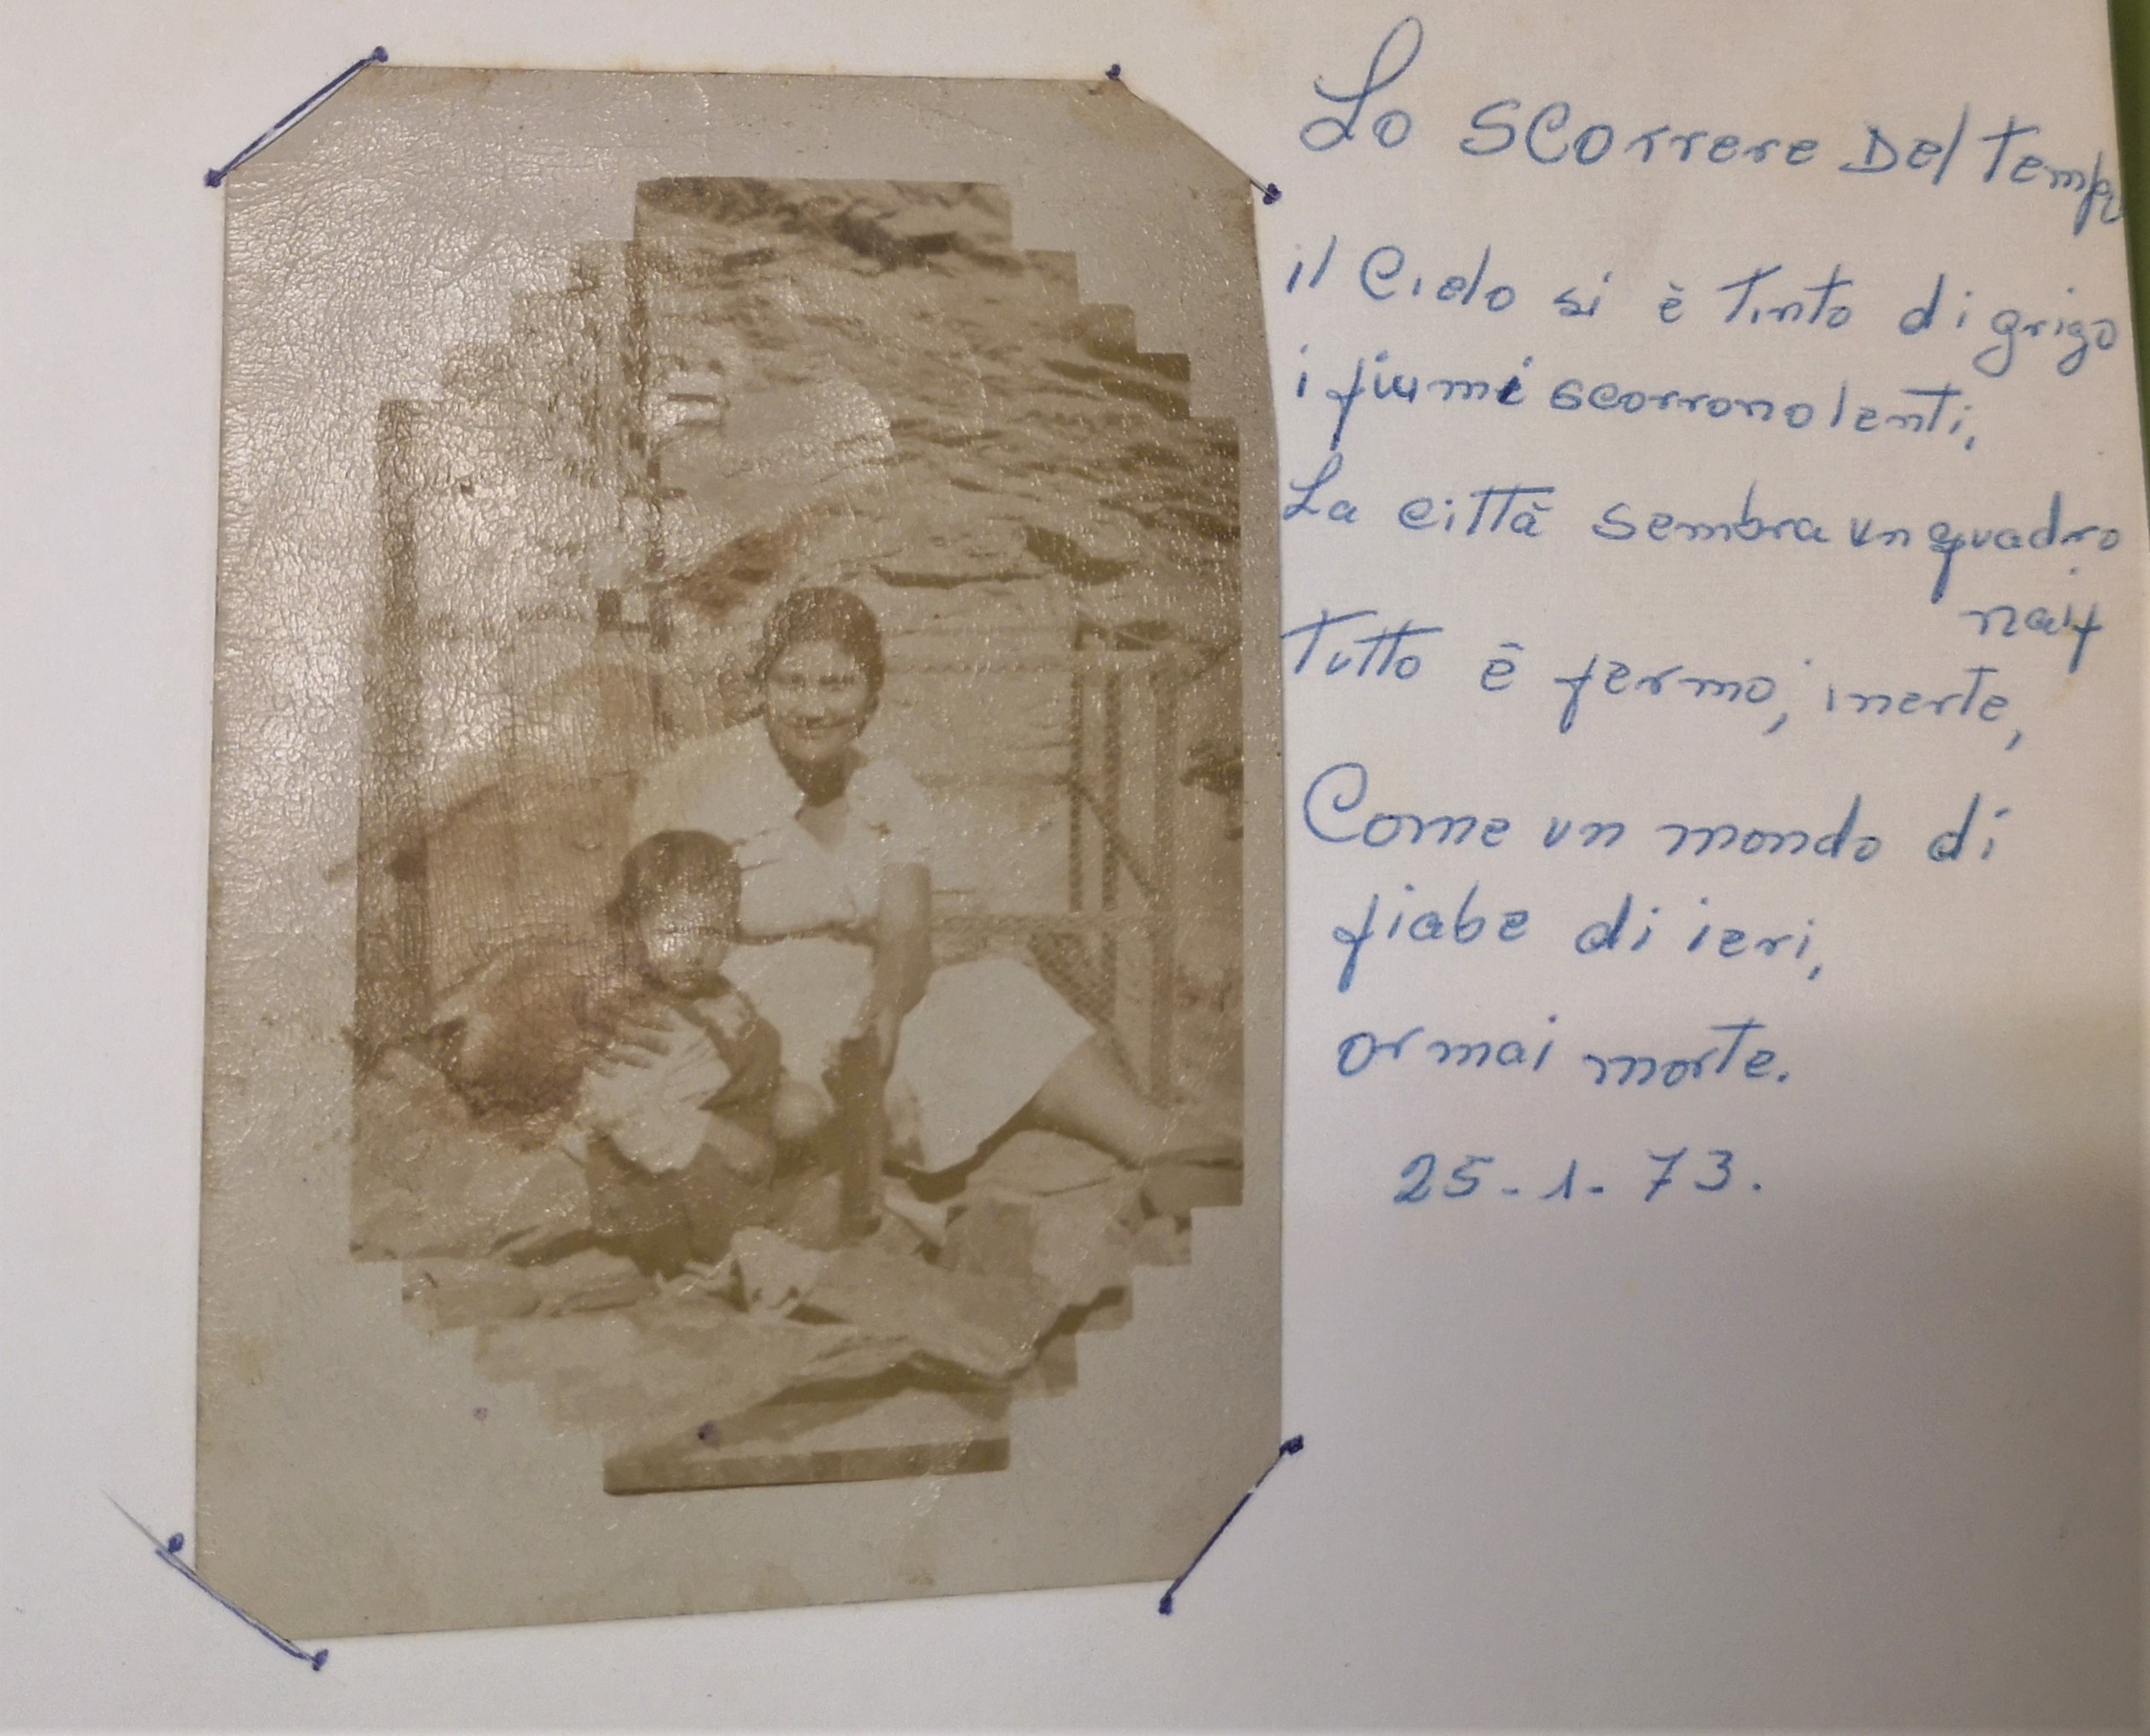 Lo scorrere Del Tempo
il Cielo si è Tinto di grigo
i fiumi scorrono lenti,
La città sembra un quadro
naif
Tutto è fermo, inerte,
Come un mondo di
fiabe di ieri,
ormai morte.
25-1-73.